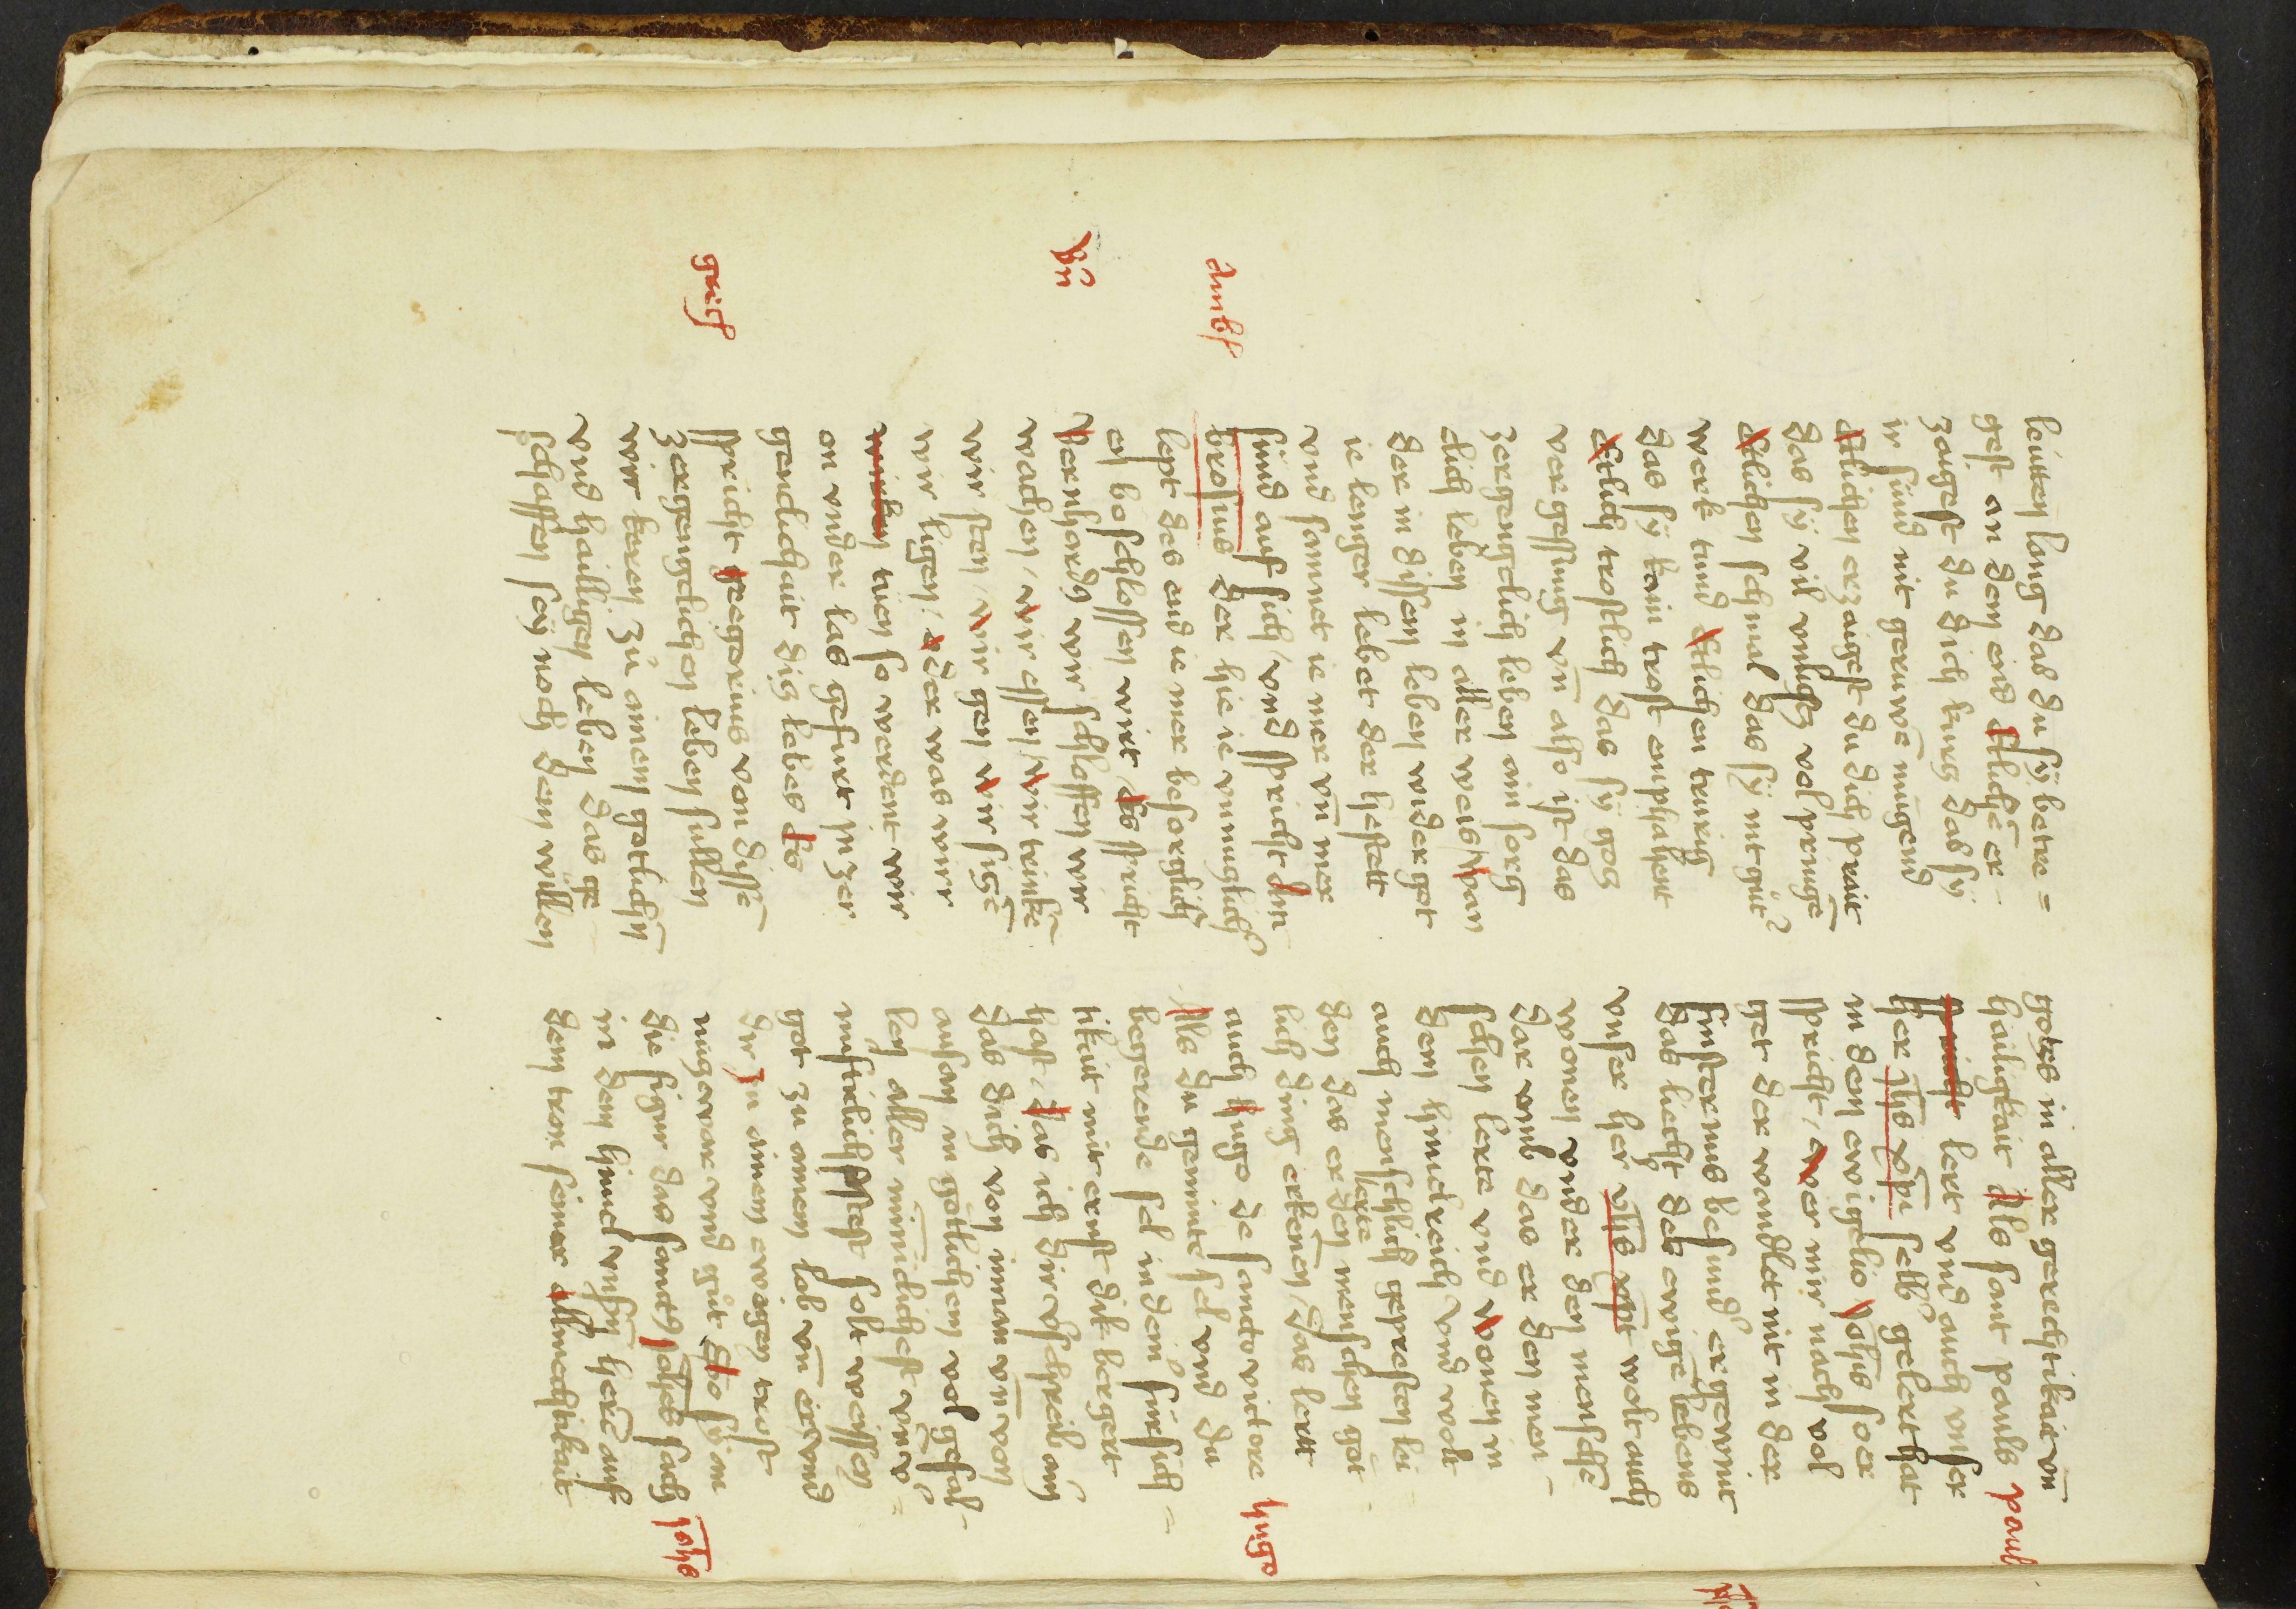 leutten lang das du sÿ betre=
gest an dem end Etliche er-
zaigest du dich kurz das sÿ
ir sünd nit geruwē mügend
Etlichen erzaigest du dich prait
das sÿ vil vnkusch vol pringē
Etlichen schmal das sÿ nit gut?
werk tund Etlichen trurig
das sÿ kain trost enphahent
Etlich trostlich das sÿ gocz
vergessung vn̄ also ist das
zergenglich leben ain sorg
dlich leben in aller weis wan
der in dissem leben wider got
ie lenger lebet der hestett
vnd samnet ie mer vn̄ mer
sünd auf sich vnd spricht Am
brosius der hie ie vnnuglich
lept des end ie mer besorglich
Bernhardus wir schlaffen wir
wachen / wir essen / wir trinkē
wir sten / wir gen wir siczē
wir ligen / oder was wir
tüen so werdent wir
on vnder las gefürt zu zer
genclichait dis lebes Es
spricht gregorius von dissē
zergenglichen leben süllen
wir keren zu ainem gotlichē
vnd hailligen leben das ge
schaffen seÿ noch dem willen
gottes in aller gerechtikait vn̄
hailigkait Als sant pauls
lert vnd auch vnser
her ihs xp̄s selb gelert hat
in dem ewigelio Johs so er
spricht / wer mir nach vol
get der wandlet nit in der
finsternus besund er gewint
das liecht des ewigē lebens
vnser her ihs xps wolt auch
wonen vnder den menschē
dar vmb das er den men-
schen lerte vnd wonen in
dem himelreich vnd wolt
auch menschlich gepresten li-
den das er den menschen göt
lich ding lerte erkenen / das lertt
auch hugo de sancto victore
Als du geminte sel vnd du
begerende sel in dein fürsich-
tikait mir ernst dik begert
hast / das ich dir vschreib ain
das dich von innan vn̄ von
ausen in götlichem wol gefal-
len aller minnichest vn̄ v=
nuftiklichest solt weissen
got zu ainem lob vn̄ er vnd
dir zu ainem ewigen trost
nüg war vnd gut Also sÿ an
die figur das sant Johes sach
in dem himel vnsern herē auf
dem tron seiner Allmechtikait
paul
hugo
Johs
Ambs
Bn̄
greg